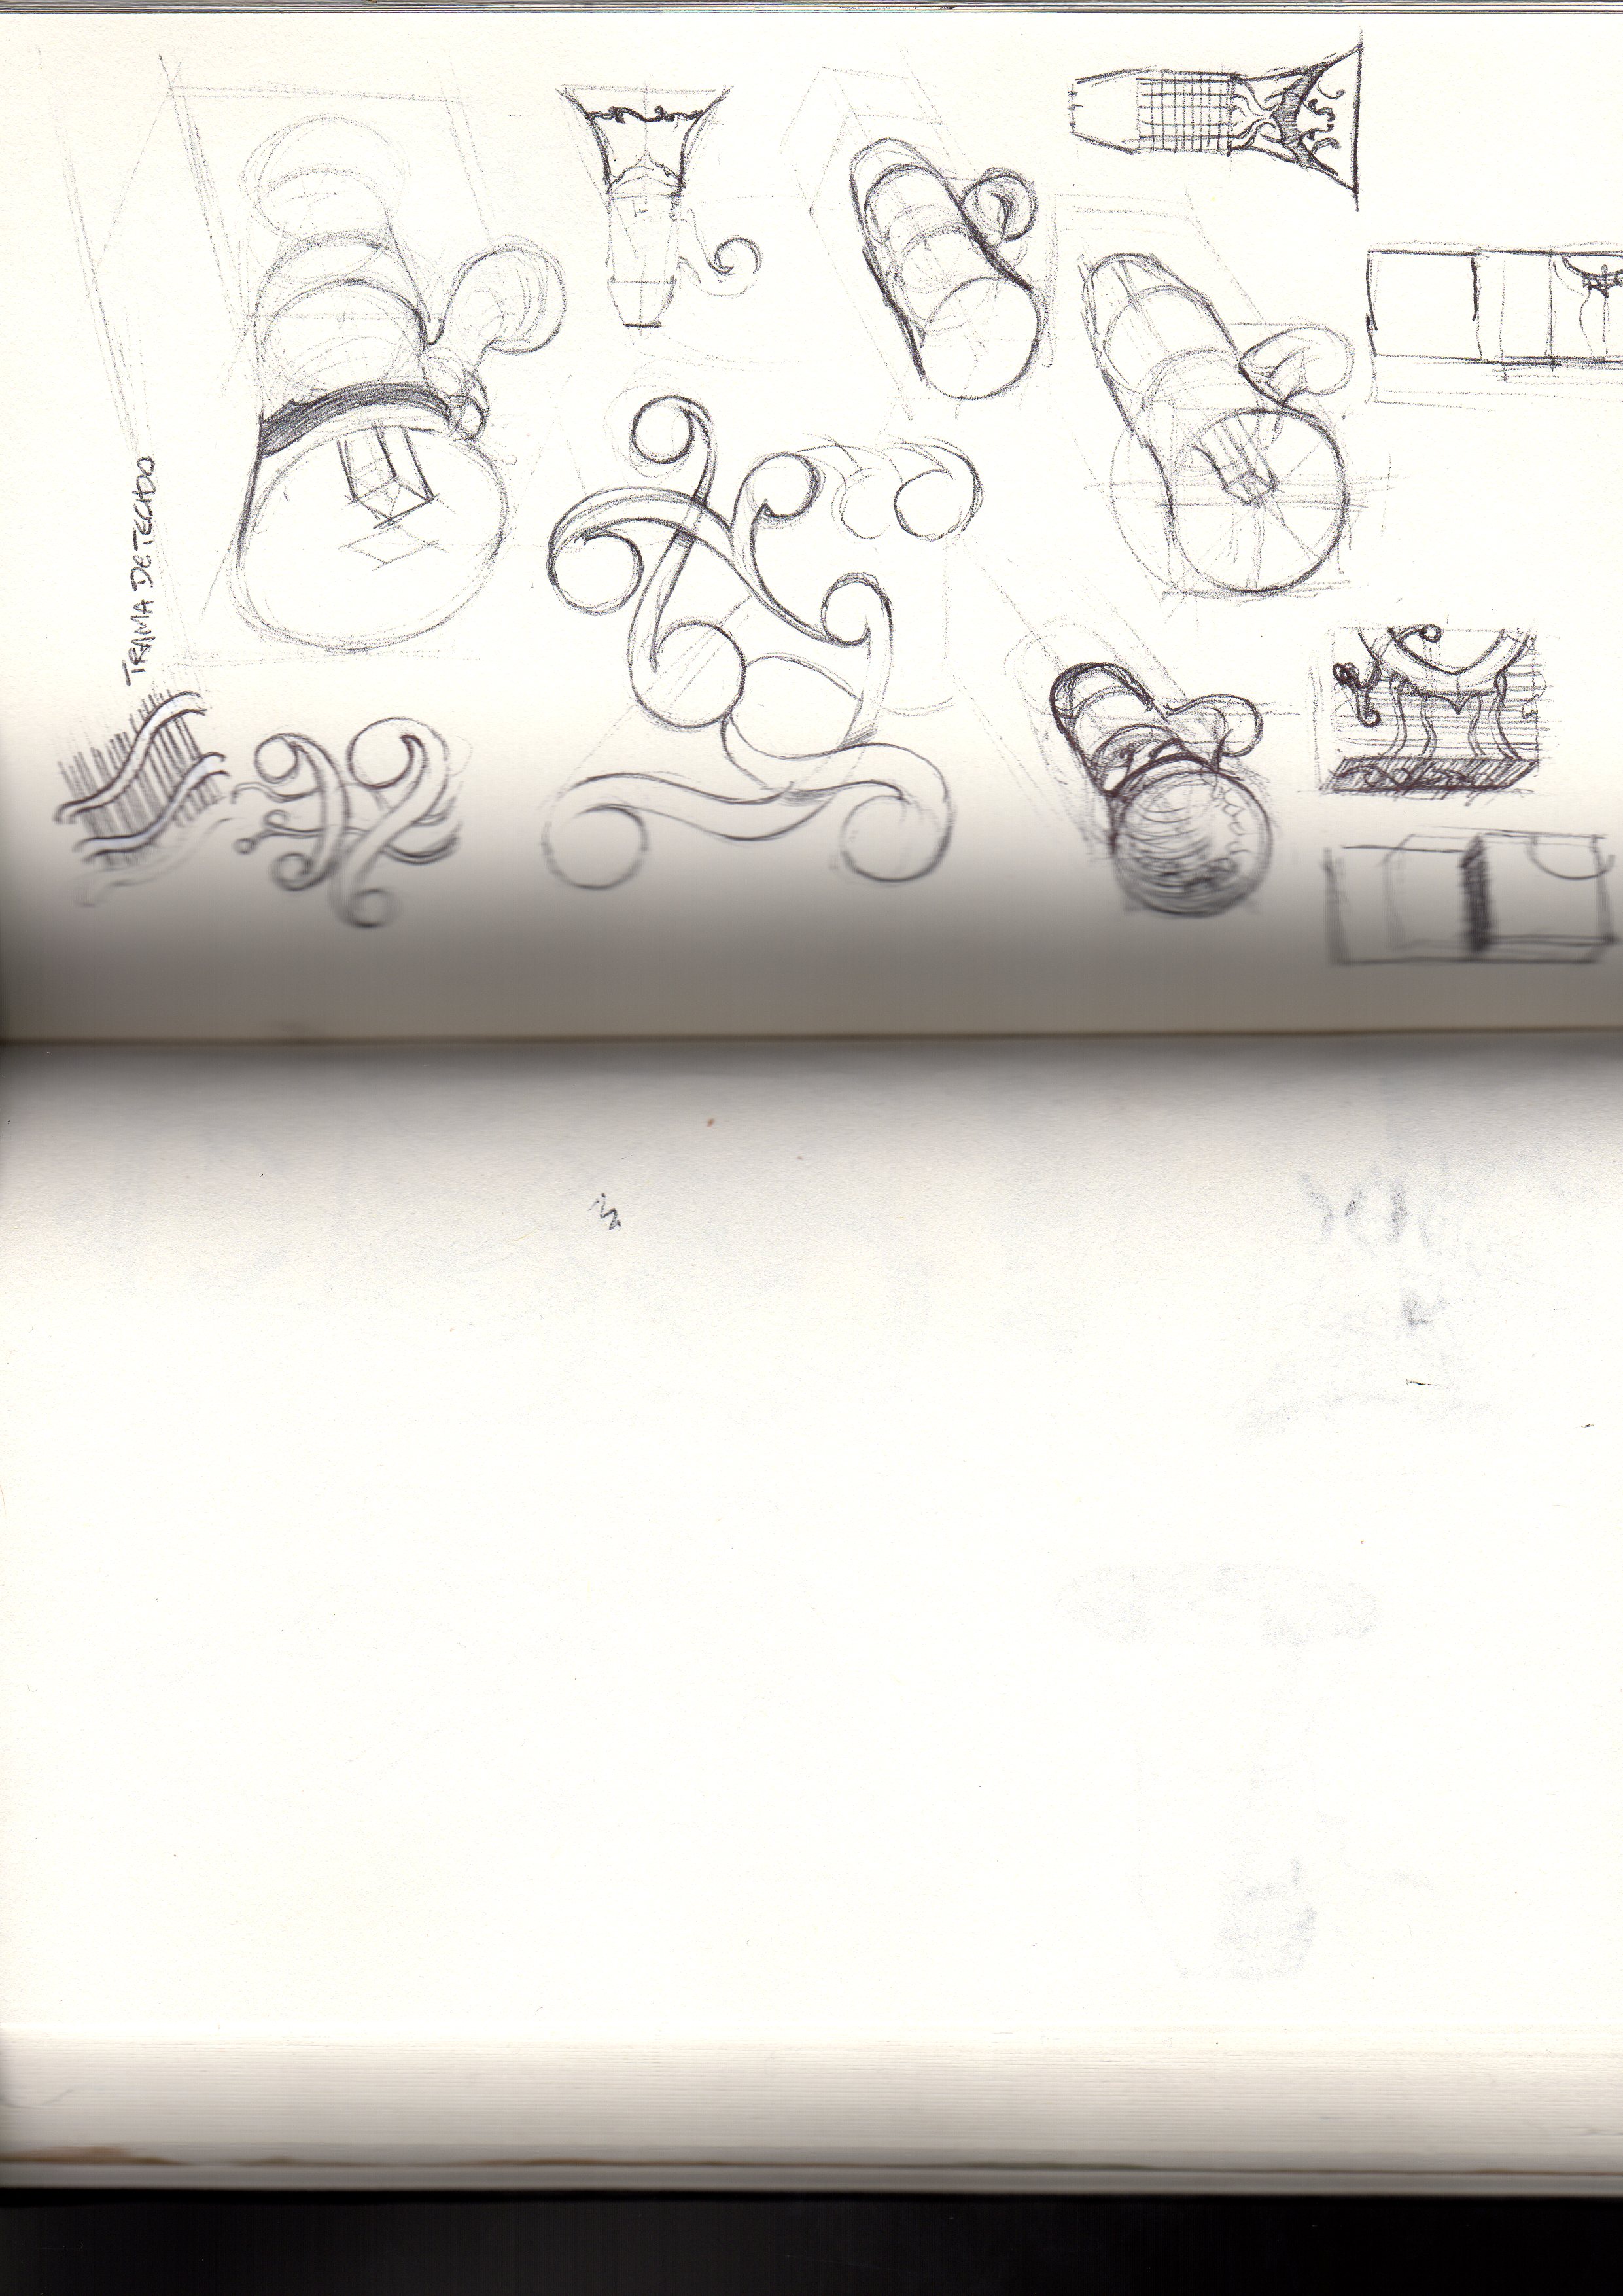 TRAMA DE TECIDO